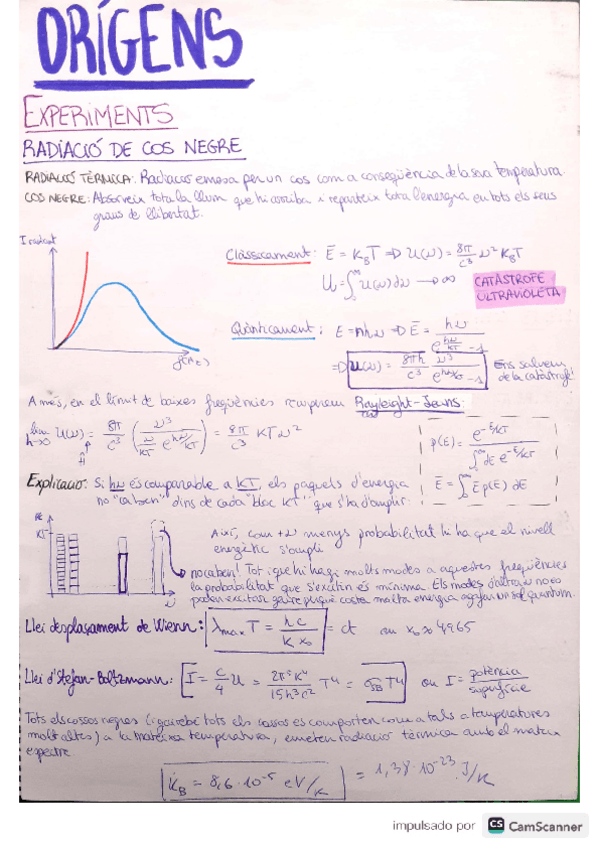 ORÍGENS
EXPERIMENTS
RADIACIÓ DE COS NEGRE
RADIACIÓ TÈRMICA: Radiació emesa per un cos com a conseqüència de la seva temperatura.
COS NEGRE: Absorveix tota la llum que hi arriba i reparteix tota l'energia en tots els seus
graus de llibertat.
Clàssicament: Ē = K_B T => U(ν) = 8π/c³ ν² K_B T
U = ∫₀^∞ u(ν)dν → ∞
CATÀSTROFE
ULTRAVIOLETA
Quànticament: E = nhν => Ē = hν / (e^(hν/KT) - 1)
=> u(ν) = 8πh/c³ ν³ / (e^(hν/KT) - 1)
Ens salvem
de la catàstrofe!
A més, en el límit de baixes freqüències recuperem Rayleight-Jeans:
lim h→0 U(ν) = 8π/c³ (ν³ / (ν/KT e^(hν/KT))) = 8π/c³ KTν²
p(E) = e^(-E/KT) / ∫₀^∞ dE e^(-E/KT)
Ē = ∫₀^∞ E p(E) dE
Explicació: Si hν és comparable a KT, els paquets d'energia
no "caben" dins de cada "bloc KT" que s'ha d'omplir.
KT
Així, com +ν menys probabilitat hi ha que el nivell
energètic s'ompli
no caben! Tot i que hi hagi molts modes a aquestes freqüències
la probabilitat que s'excitin és mínima. Els modes d'alta ν no es
poden excitar gaire perquè costa molta energia agafar un sol quantum.
Llei desplaçament de Wienn: λmax T = hc / K x₀ = ct on x₀ ≈ 4,965
Llei d'Stefan-Boltzmann: I = c/4 U = 2π⁵K⁴ / 15h³c² T⁴ = σ_SB T⁴ on I = potència / superfície
Tots els cossos negres (i gairebé tots els cossos es comporten com a tals a temperatures
molt altes) a la mateixa temperatura, emeten radiació tèrmica amb el mateix
espectre
K_B = 8,6·10⁻⁵ eV/K = 1,38·10⁻²³ J/K
impulsado por CS CamScanner